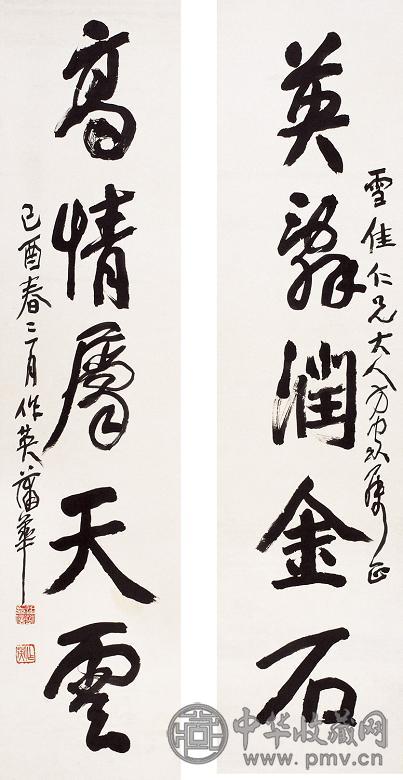 英辭潤金石
雪佳仁兄大人方家屬正
高情屬天雲
己酉春二月作英蒲華
中华收藏网
www.pmv.cn